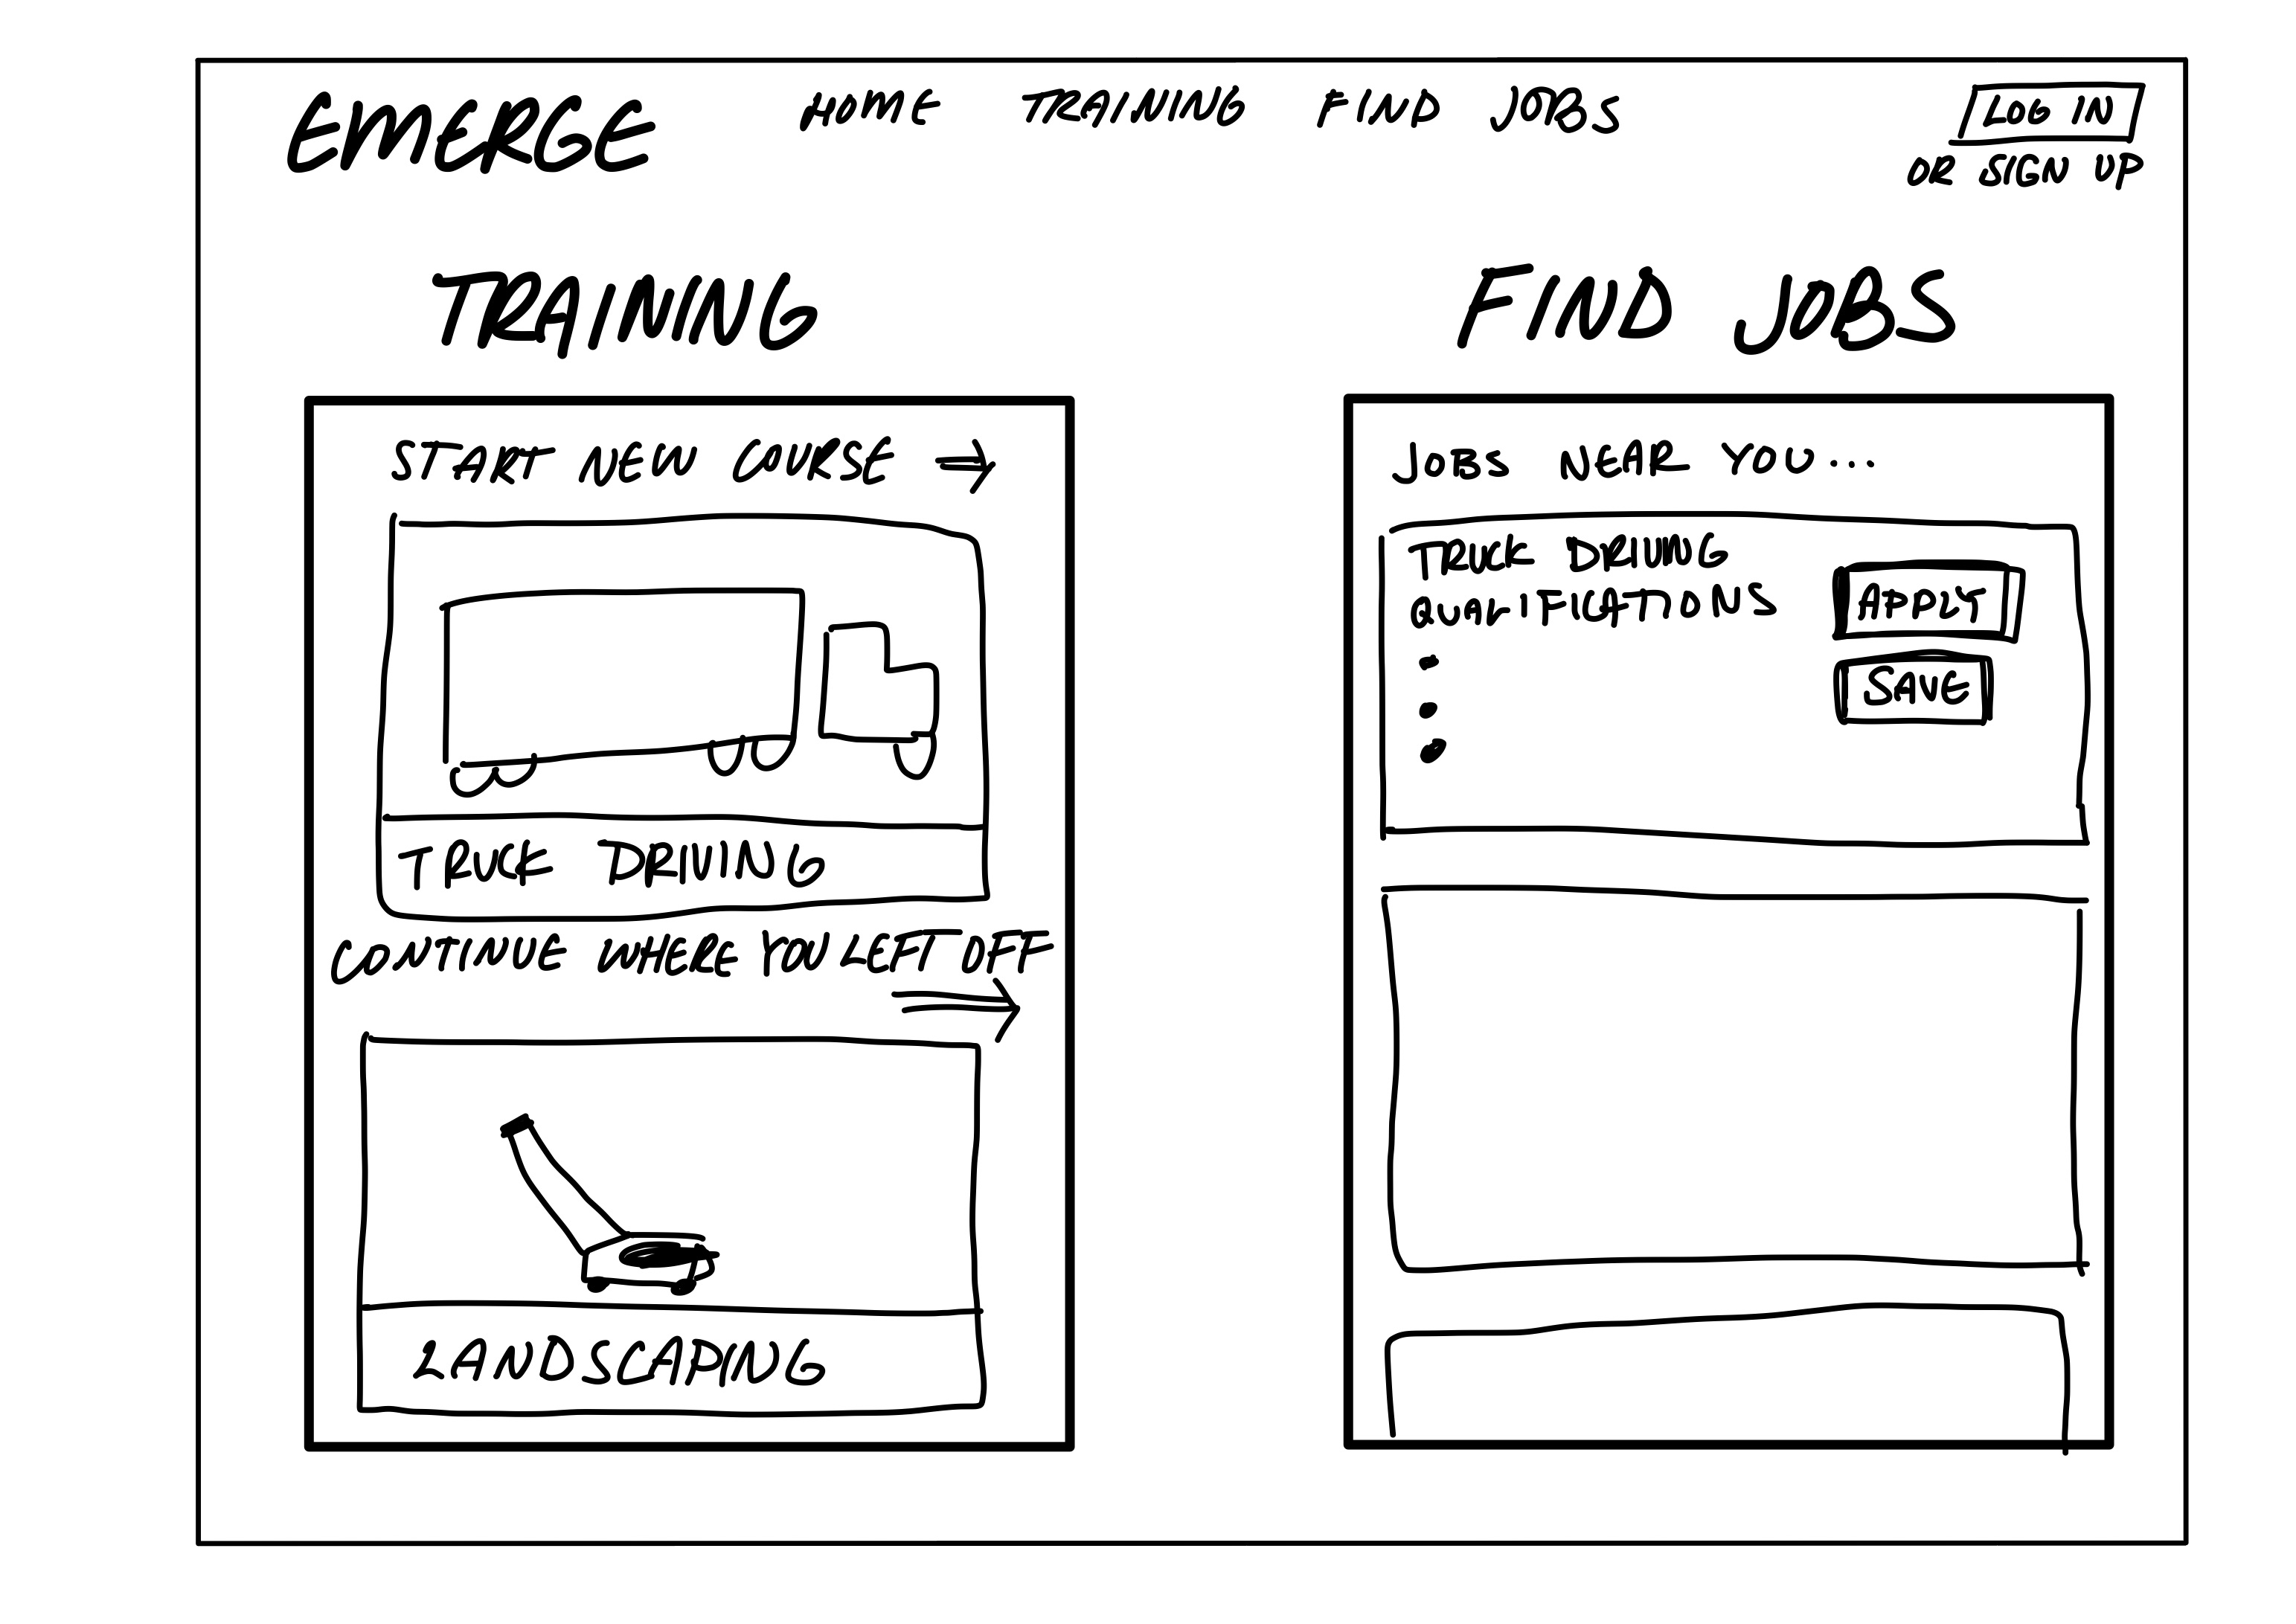 EMERGE
HOME TRAINING FIND JOBS
LOG IN
OR SIGN UP
TRAINING
START NEW COURSE →
TRUCK DRIVING
CONTINUE WHERE YOU LEFT OFF
→
LANDSCAPING
FIND JOBS
JOBS NEAR YOU...
TRUCK DRIVING
QUALIFICATIONS
APPLY
SAVE